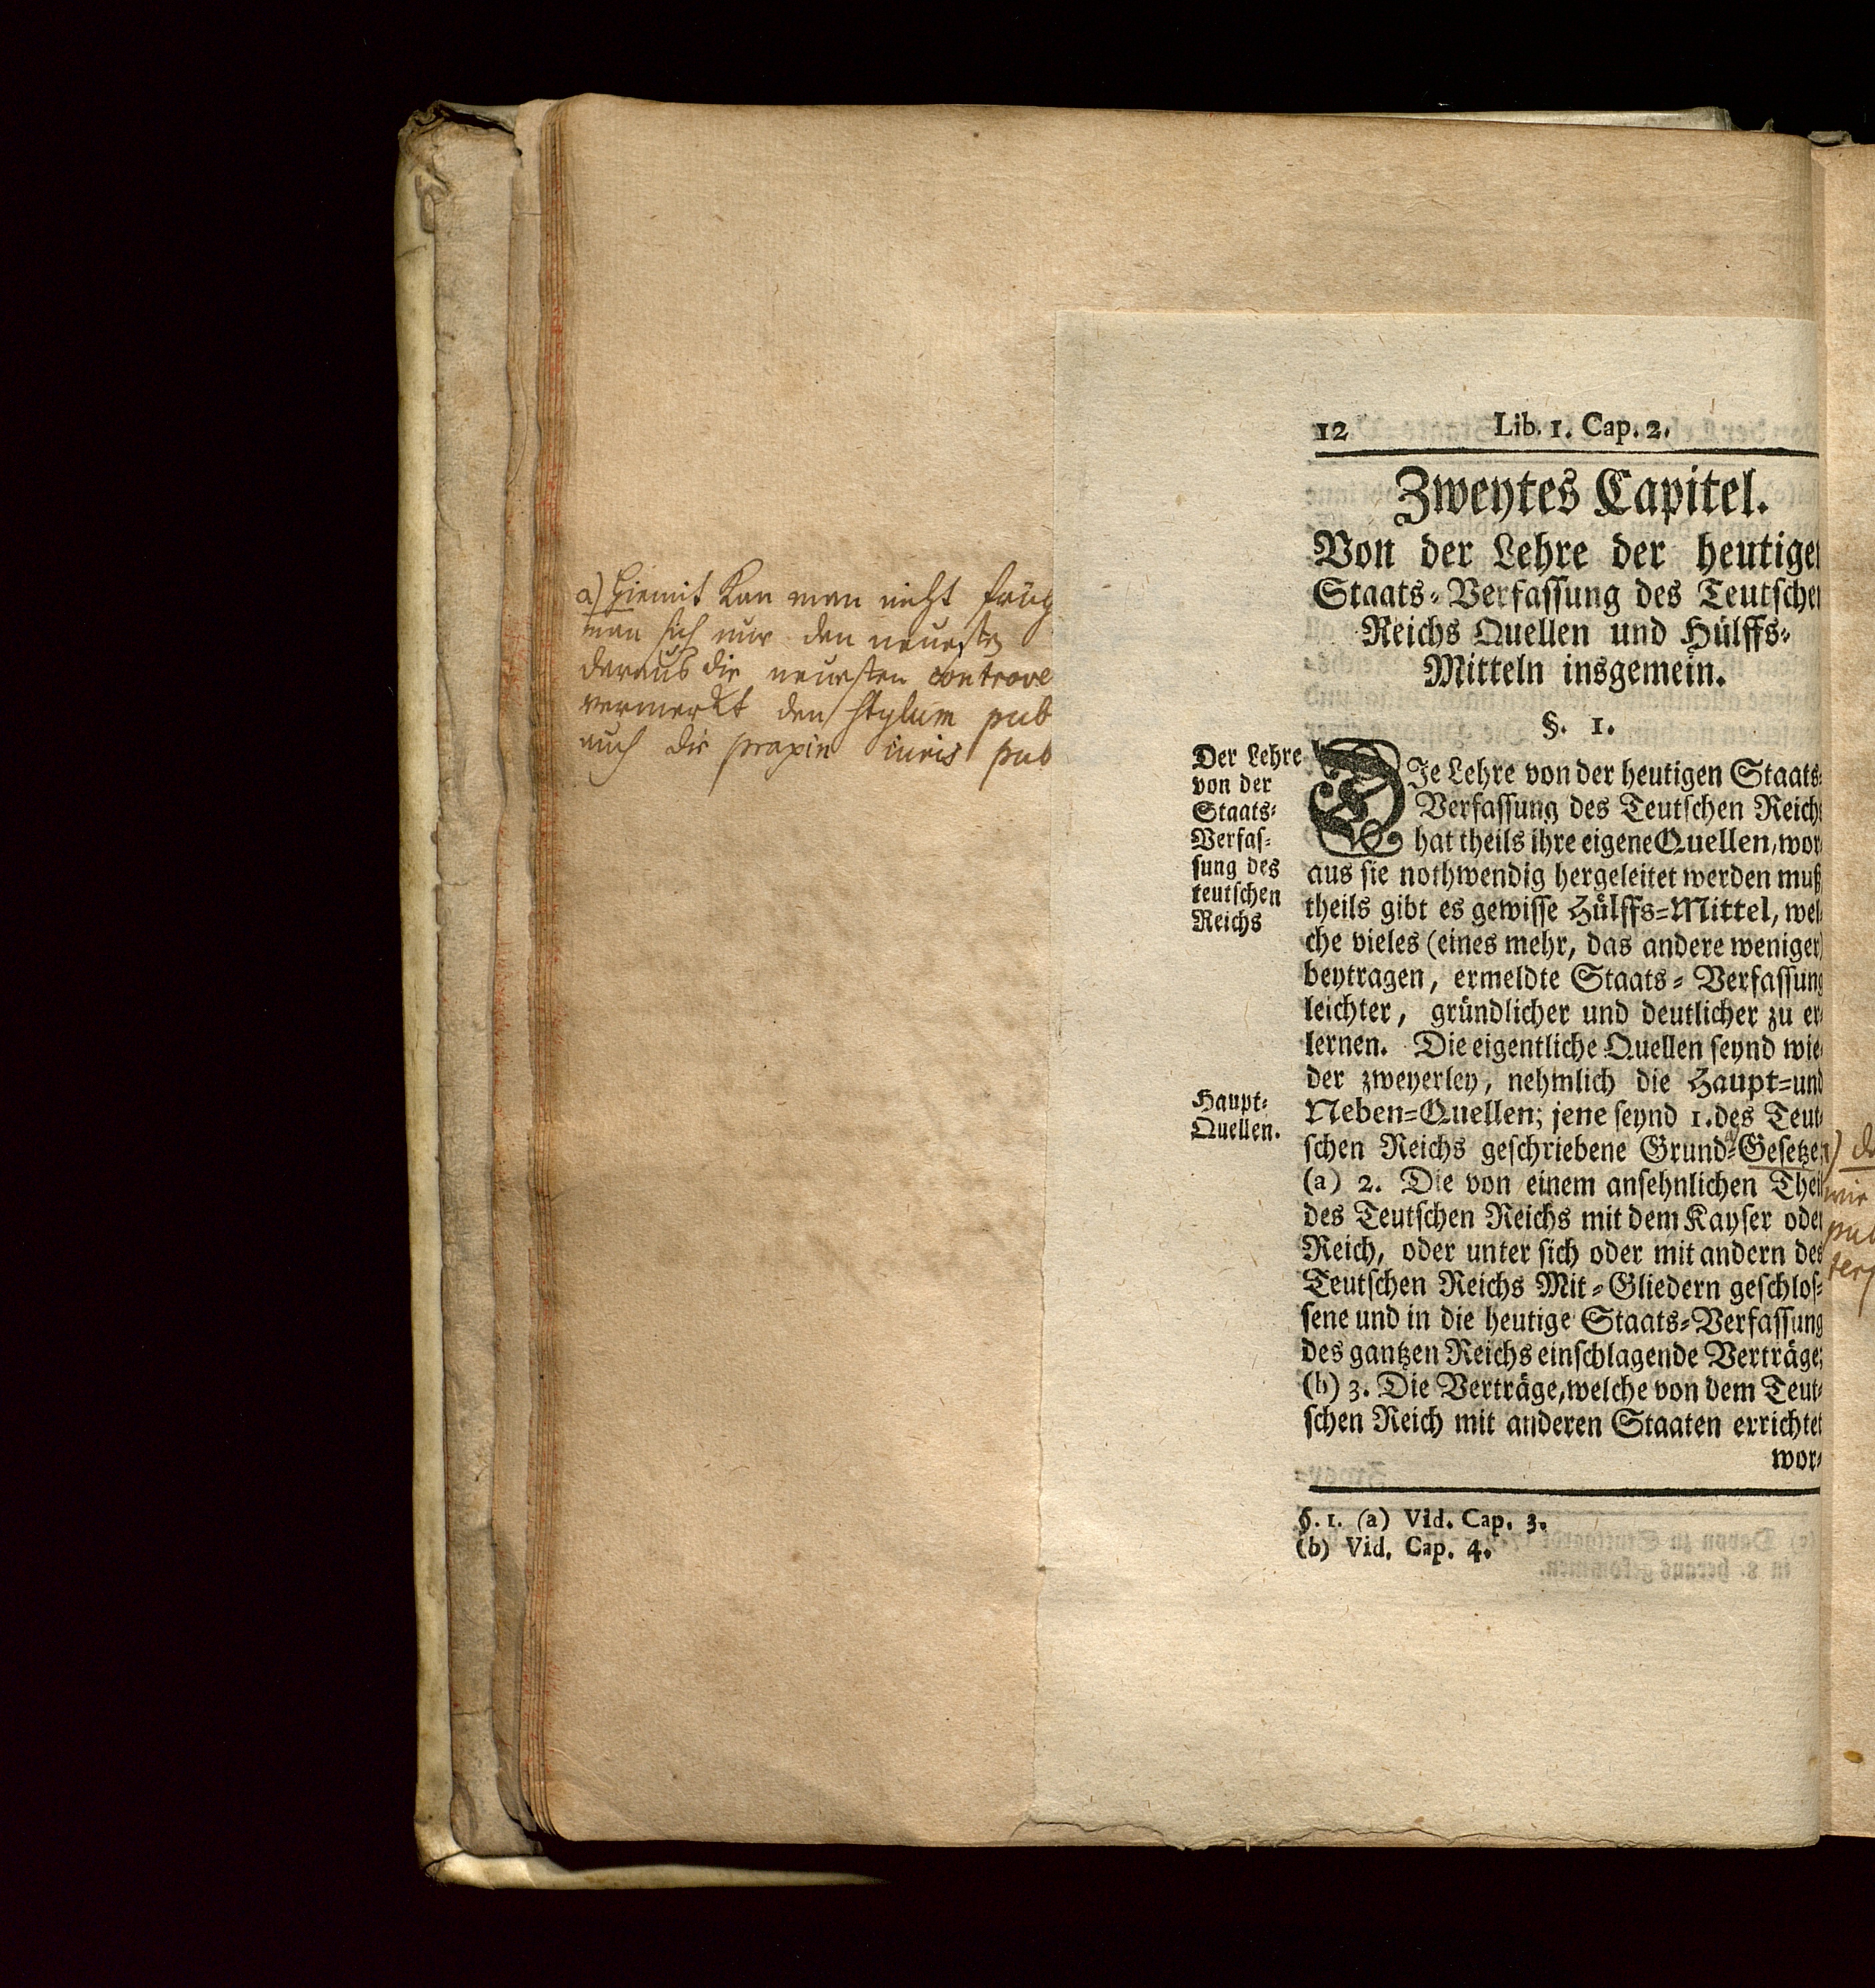 a) Hiemit kan man nicht
man sich nur den neuesten
daraus die neuesten controve
vermerkt den stylum pub
auch die praxin iuris pub
12 Lib. 1. Cap. 2.
Zweytes Capitel.
Von der Lehre der heutige
Staats-Verfassung des Teutsche
Reichs Quellen und Hülffs-
Mitteln insgemein.
§. 1.
Der Lehre
von der
Staats-
Verfas-
sung des
teutschen
Reichs
DIe Lehre von der heutigen Staats-
Verfassung des Teutschen Reichs
hat theils ihre eigene Quellen, wor-
aus sie nothwendig hergeleitet werden muß
theils gibt es gewisse Hülffs-Mittel, wel-
che vieles (eines mehr, das andere weniger)
beytragen, ermeldte Staats-Verfassung
leichter, gründlicher und deutlicher zu er-
lernen. Die eigentliche Quellen seynd wie-
der zweyerley, nehmlich die Haupt-und
Haupt-
Quellen.
Neben-Quellen; jene seynd 1. des Teut-
schen Reichs geschriebene Grund-Gesetze
(a) 2. Die von einem ansehnlichen Theil
des Teutschen Reichs mit dem Kayser oder
Reich, oder unter sich oder mit andern des
Teutschen Reichs Mit-Gliedern geschlos-
sene und in die heutige Staats-Verfassung
des gantzen Reichs einschlagende Verträge;
(b) 3. Die Verträge, welche von dem Teut-
schen Reich mit anderen Staaten errichtet
wor-
§. 1. (a) Vid. Cap. 3.
(b) Vid. Cap. 4.